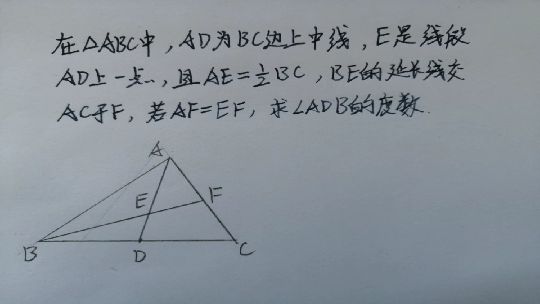 在△ABC中，AD为BC边上中线，E是线段
AD上一点，且AE=½BC，BE的延长线交
AC于F，若AF=EF，求∠ADB的度数.
A
E
F
B
D
C